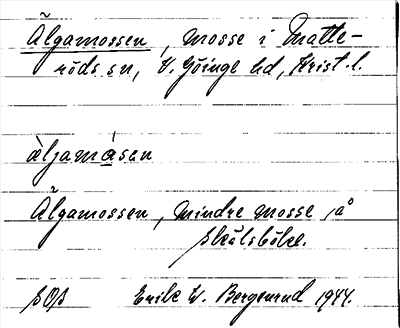 Älgamossen, mosse i Matte-
röds sn, V. Göinge hd, Krist. l.
àljamåsen
Älgamossen, mindre mosse på
Skälsböke.
SOS Erik W. Bergenrud 1944.